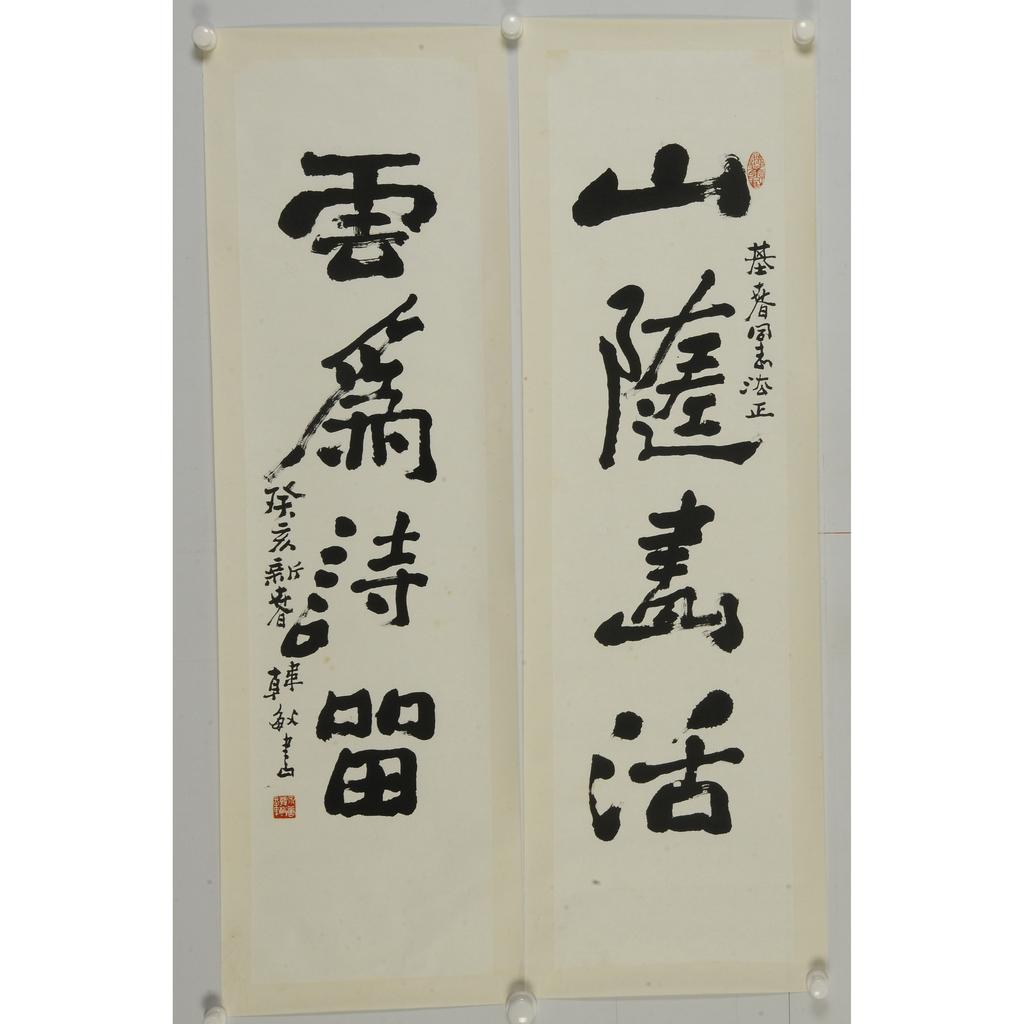 山隨畫活
基春同志法正
雲為詩留
癸亥新春
韓敏書